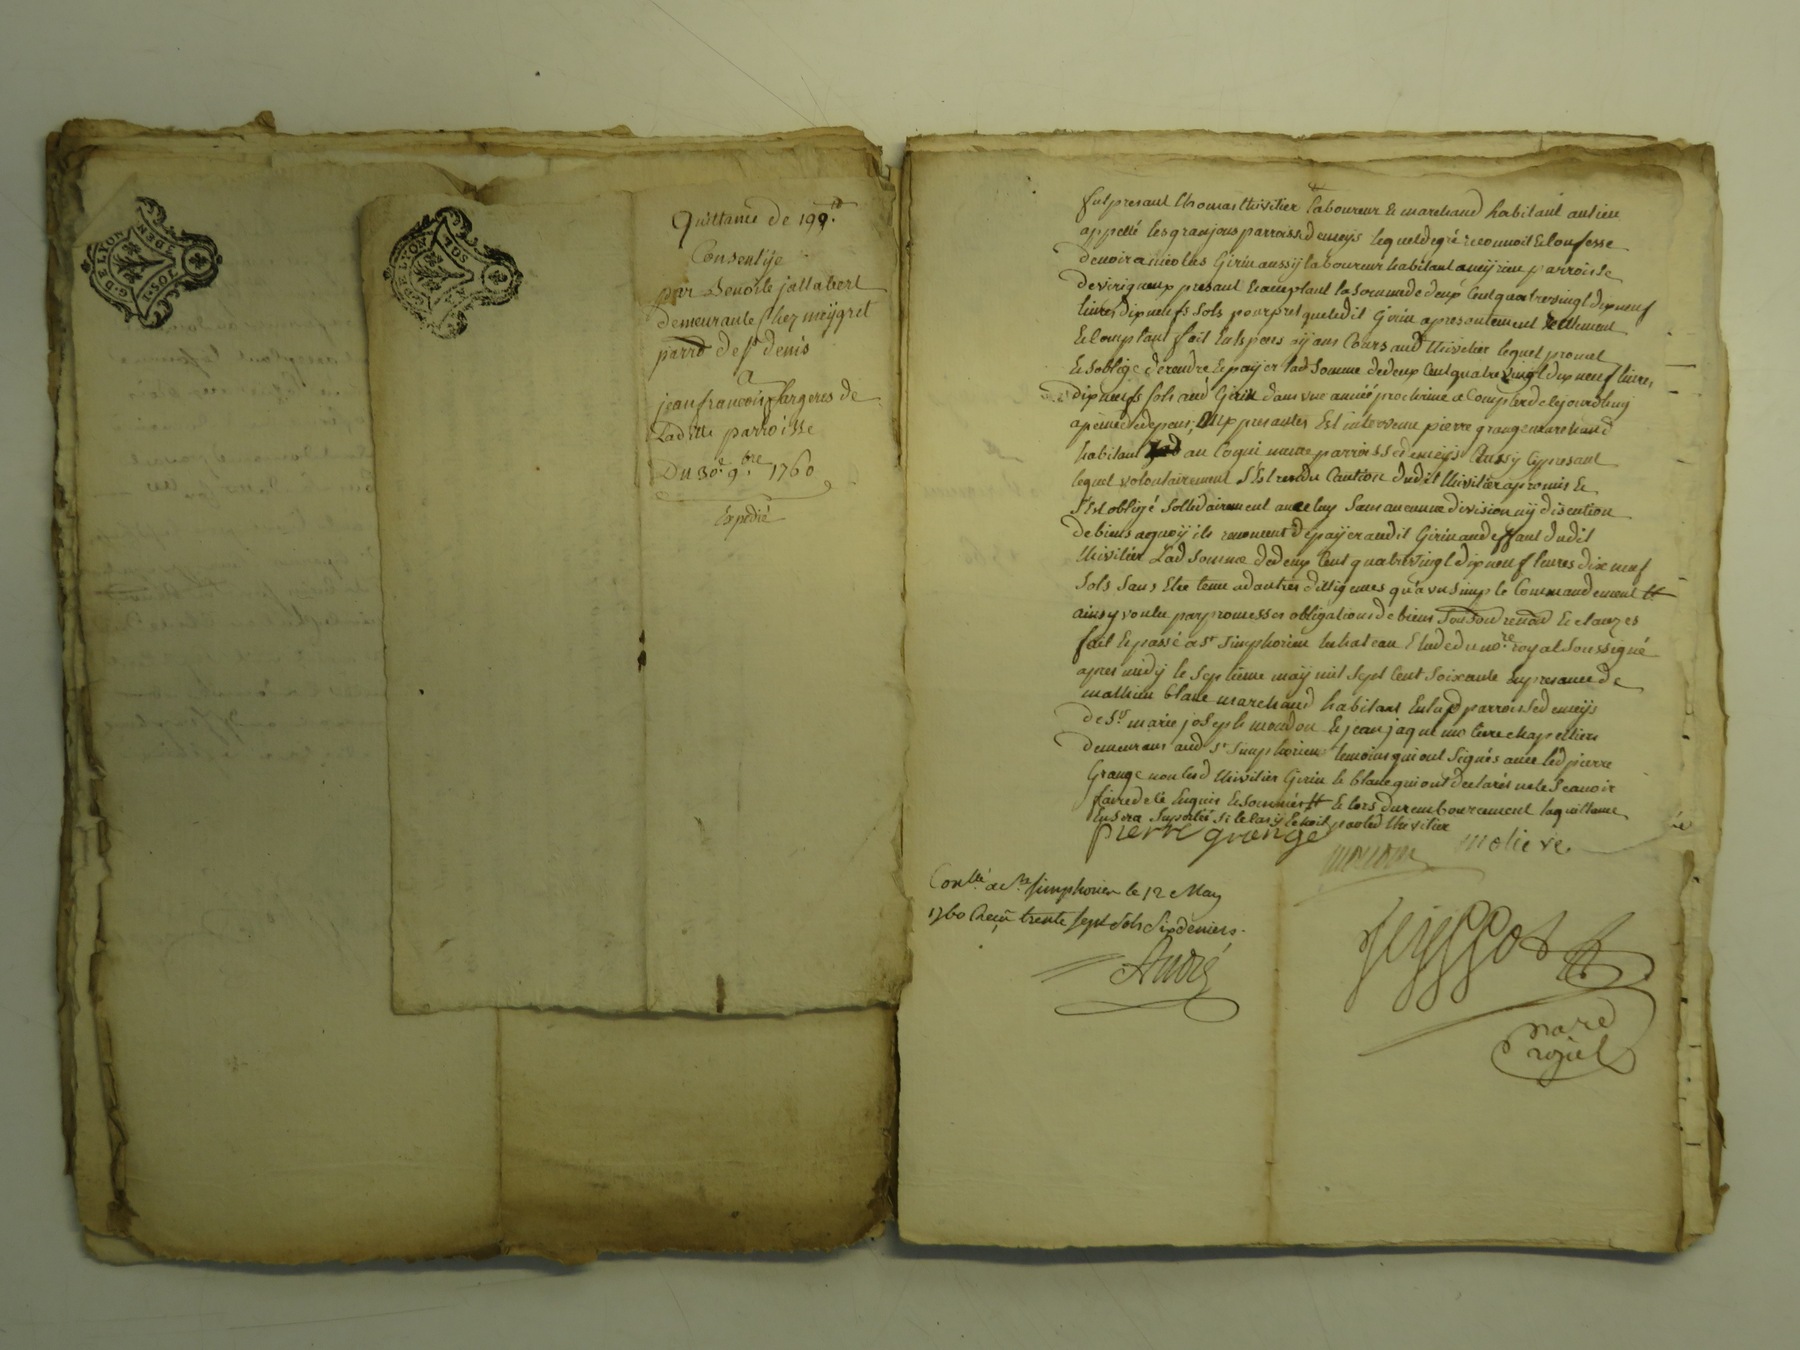 G. DE LYON
I. SOL
G. DE LYON
Quittance de 199.lt
Consentye
par Benoite jallabert
demeurante chez meygret
parre de st denis
a
jean francois fargeres de
Laditte parroisse
Du 30e 9bre 1760
Expedié
fut presant thomas thivilier laboureur & marchand habitant au lieu
appellé les granjons parroisse de meys lequel de gré reconnoit & confesse
devoir a nicolas Girin aussy laboureur habitant a parroisse
de virigneux presant & acceptant la somme de deux cent quatre vingt dix neuf
livres dix neufs sols pour pret que ledit Girin a presentement reellement
& comptant fait en especes ayans Cours aud thivilier lequel promet
& s'oblige de rendre & payer lad somme de deux Cent quatre vingt dix neuf livres
dix neufs sols aud Girin dans une année prochaine a Compter de cejourdhuy
a peine de depens, aux presantes Est intervenu pierre grange marchand
habitant au parroisse de meys Aussy cy presant
lequel volontairement s'Est rendu Caution dudit thivilier a promis &
s'Est obligé sollidairement avec luy sans aucune division ny discution
de biens a quoy ils renoncent de payer audit Girin au deffaut dudit
thivilier Lad somme de deux Cent quatre vingt dix neuf livres dix neuf
sols sans Etre tenu a dautres dilligences qu'a un simple Commandement #
ainsy voulu par promesses obligations de biens renon & clauzes
fait & passé a st simphorien le chateau Etude du nore royal soussigné
apres midy le septieme may mil sept Cent soixante En presance de
mathieu blanc marchand habitant En lad parroisse de meys
de sr marie joseph mondon & jean jaque molieve chapellier
demeurans aud st simphorien temoins qui ont signés avec led pierre
Grange non lesd thivilier Girin & blanc qui ont declarés ne le scavoir
faire de ce Enquis & sommés # & lors du rembourcement la quittance
En sera suportée si le cas y Echoit par led thivilier
pierre grange
mondon
molieve
Conllé a St simphorien le 12 May
1760 Receu trente sept sols six deniers.
André
nore
royal